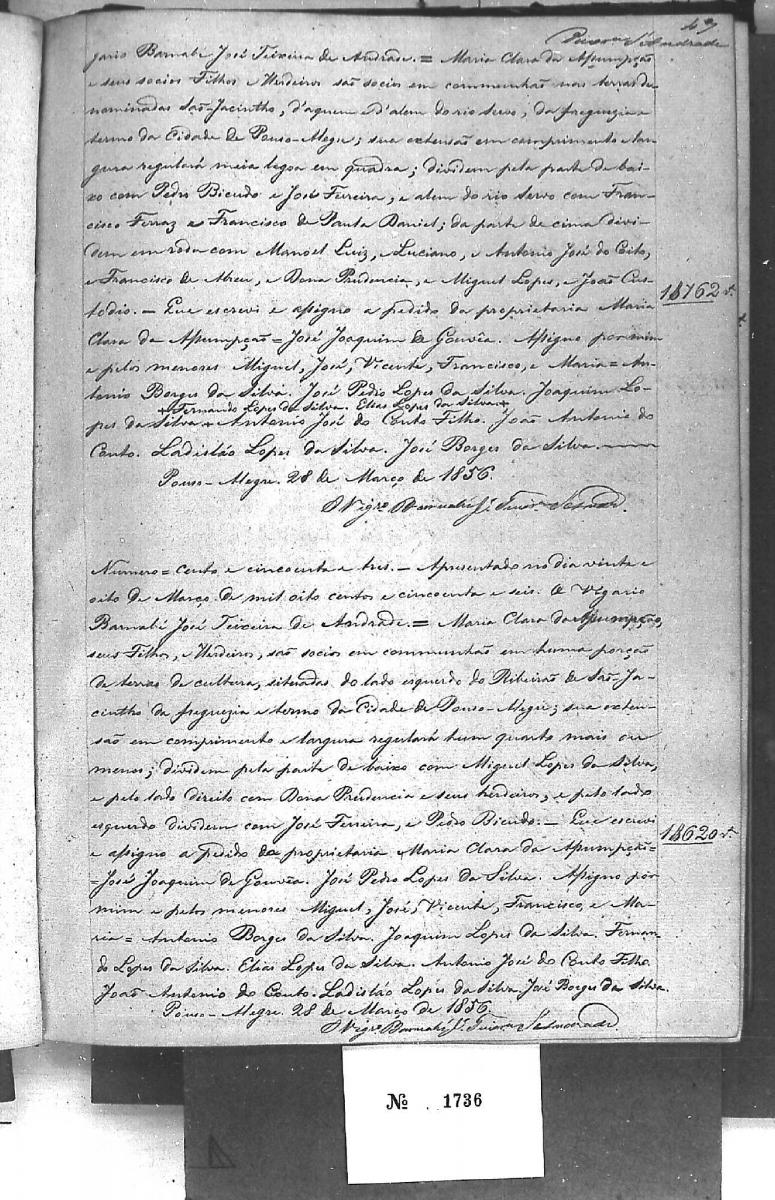 49
Teixeira d'Andrade
gario Barnabé José Teixeira de Andrade. = Maria Clara da Assumpção
e seus socios Filhos e Herdeiros são socios em communhão nas terras de-
nominadas São-Jacintho, d'aquem e d'alem do rio Servo, da freguezia e
termo da Cidade de Pouso-Alegre; sua extensão em comprimento e lar-
gura regulará meia legoa em quadra; dividem pela parte de bai-
xo com Pedro Bicudo e José Ferreira, e alem do rio Servo com Fran-
cisco Ferraz e Francisco de Paula Daniel; da parte de cima divi-
dem em roda com Manoel Luiz, e Luciano, e Antonio José do Coito,
e Francisco de Abreu, e Dona Prudencia, e Miguel Lopes, e João Cus-
todio. — Que escrevi e assigno a pedido da proprietaria Maria
18762 r.
Clara da Assumpção = José Joaquim de Gouvêa. Assigno por mim
e pelos menores Miguel, José, Vicente, Francisco, e Maria = An-
tonio Borges da Silva. José Pedro Lopes da Silva. Joaquim Lo-
+ Fernando Lopes da Silva. Elias Lopes da Silva +
pes da Silva + Antonio José do Couto Filho. João Antonio do
Couto. Ladislão Lopes da Silva. José Borges da Silva.
Pouso-Alegre. 28 de Março de 1856.
O Vigr.o Barnabé J.e Teixr.a de Andrade.
Numero = cento e cincoenta e tres. — Apresentado no dia vinte e
oito de Março de mil oito centos e cincoenta e seis. O Vigario
Barnabé José Teixeira de Andrade. = Maria Clara da Assumpção,
seus Filhos, e Herdeiros, são socios em communhão em huma porção
de terras de cultura, situadas do lado esquerdo do Ribeirão de São-Ja-
cintho da freguezia e termo da Cidade de Pouso-Alegre; sua exten-
são em comprimento e largura regulará hum quarto mais ou
menos; dividem pela parte de baixo com Miguel Lopes da Silva,
e pelo lado direito com Dona Prudencia e seus herdeiros, e pelo lado
esquerdo dividem com José Ferreira, e Pedro Bicudo. — Que escrevi
18620 r.
e assigno a pedido da proprietaria Maria Clara da Assumpção
= José Joaquim de Gouvêa. José Pedro Lopes da Silva. Assigno por
mim e pelos menores Miguel, José, Vicente, Francisco, e Ma-
ria = Antonio Borges da Silva. Joaquim Lopes da Silva. Fernan-
do Lopes da Silva. Elias Lopes da Silva. Antonio José do Couto Filho.
João Antonio do Couto. Ladislão Lopes da Silva. José Borges da Silva.
Pouso-Alegre. 28 de Março de 1856.
O Vigr.o Barnabé J.e Teixr.a de Andrade.
No 1736